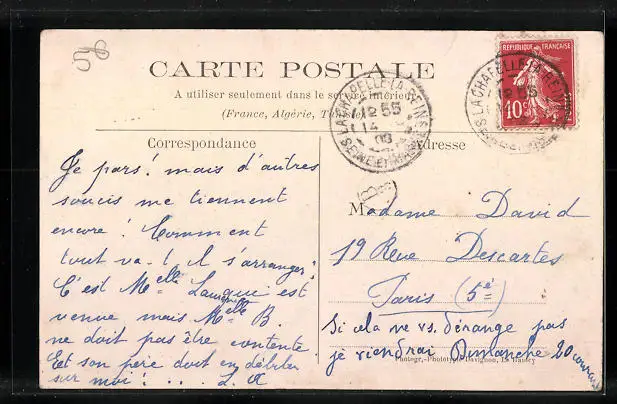 58
CARTE POSTALE
A utiliser seulement dans le service intérieur
(France, Algérie, Tunisie)
LA CHAPELLE-LA-REINE
12 55
14
08
SEINE-ET-MARNE
REPUBLIQUE FRANÇAISE
10c
POSTES
LA CHAPELLE-LA-REINE
12 55
SEINE-ET-MARNE
Correspondance
Je pars! mais d'autres
soucis me tiennent
encore! Comment
tout va-t-il s'arranger?
C'est Melle est
venue mais Melle B.
ne doit pas être contente
Et son père doit en débiter
sur moi! ...
Adresse
B
Madame David
19 Rue Descartes
Paris (5e)
Si cela ne vs. dérange pas
je viendrai Dimanche 20 courant
Photogr.-Phototypie Davignon, Le Bautry